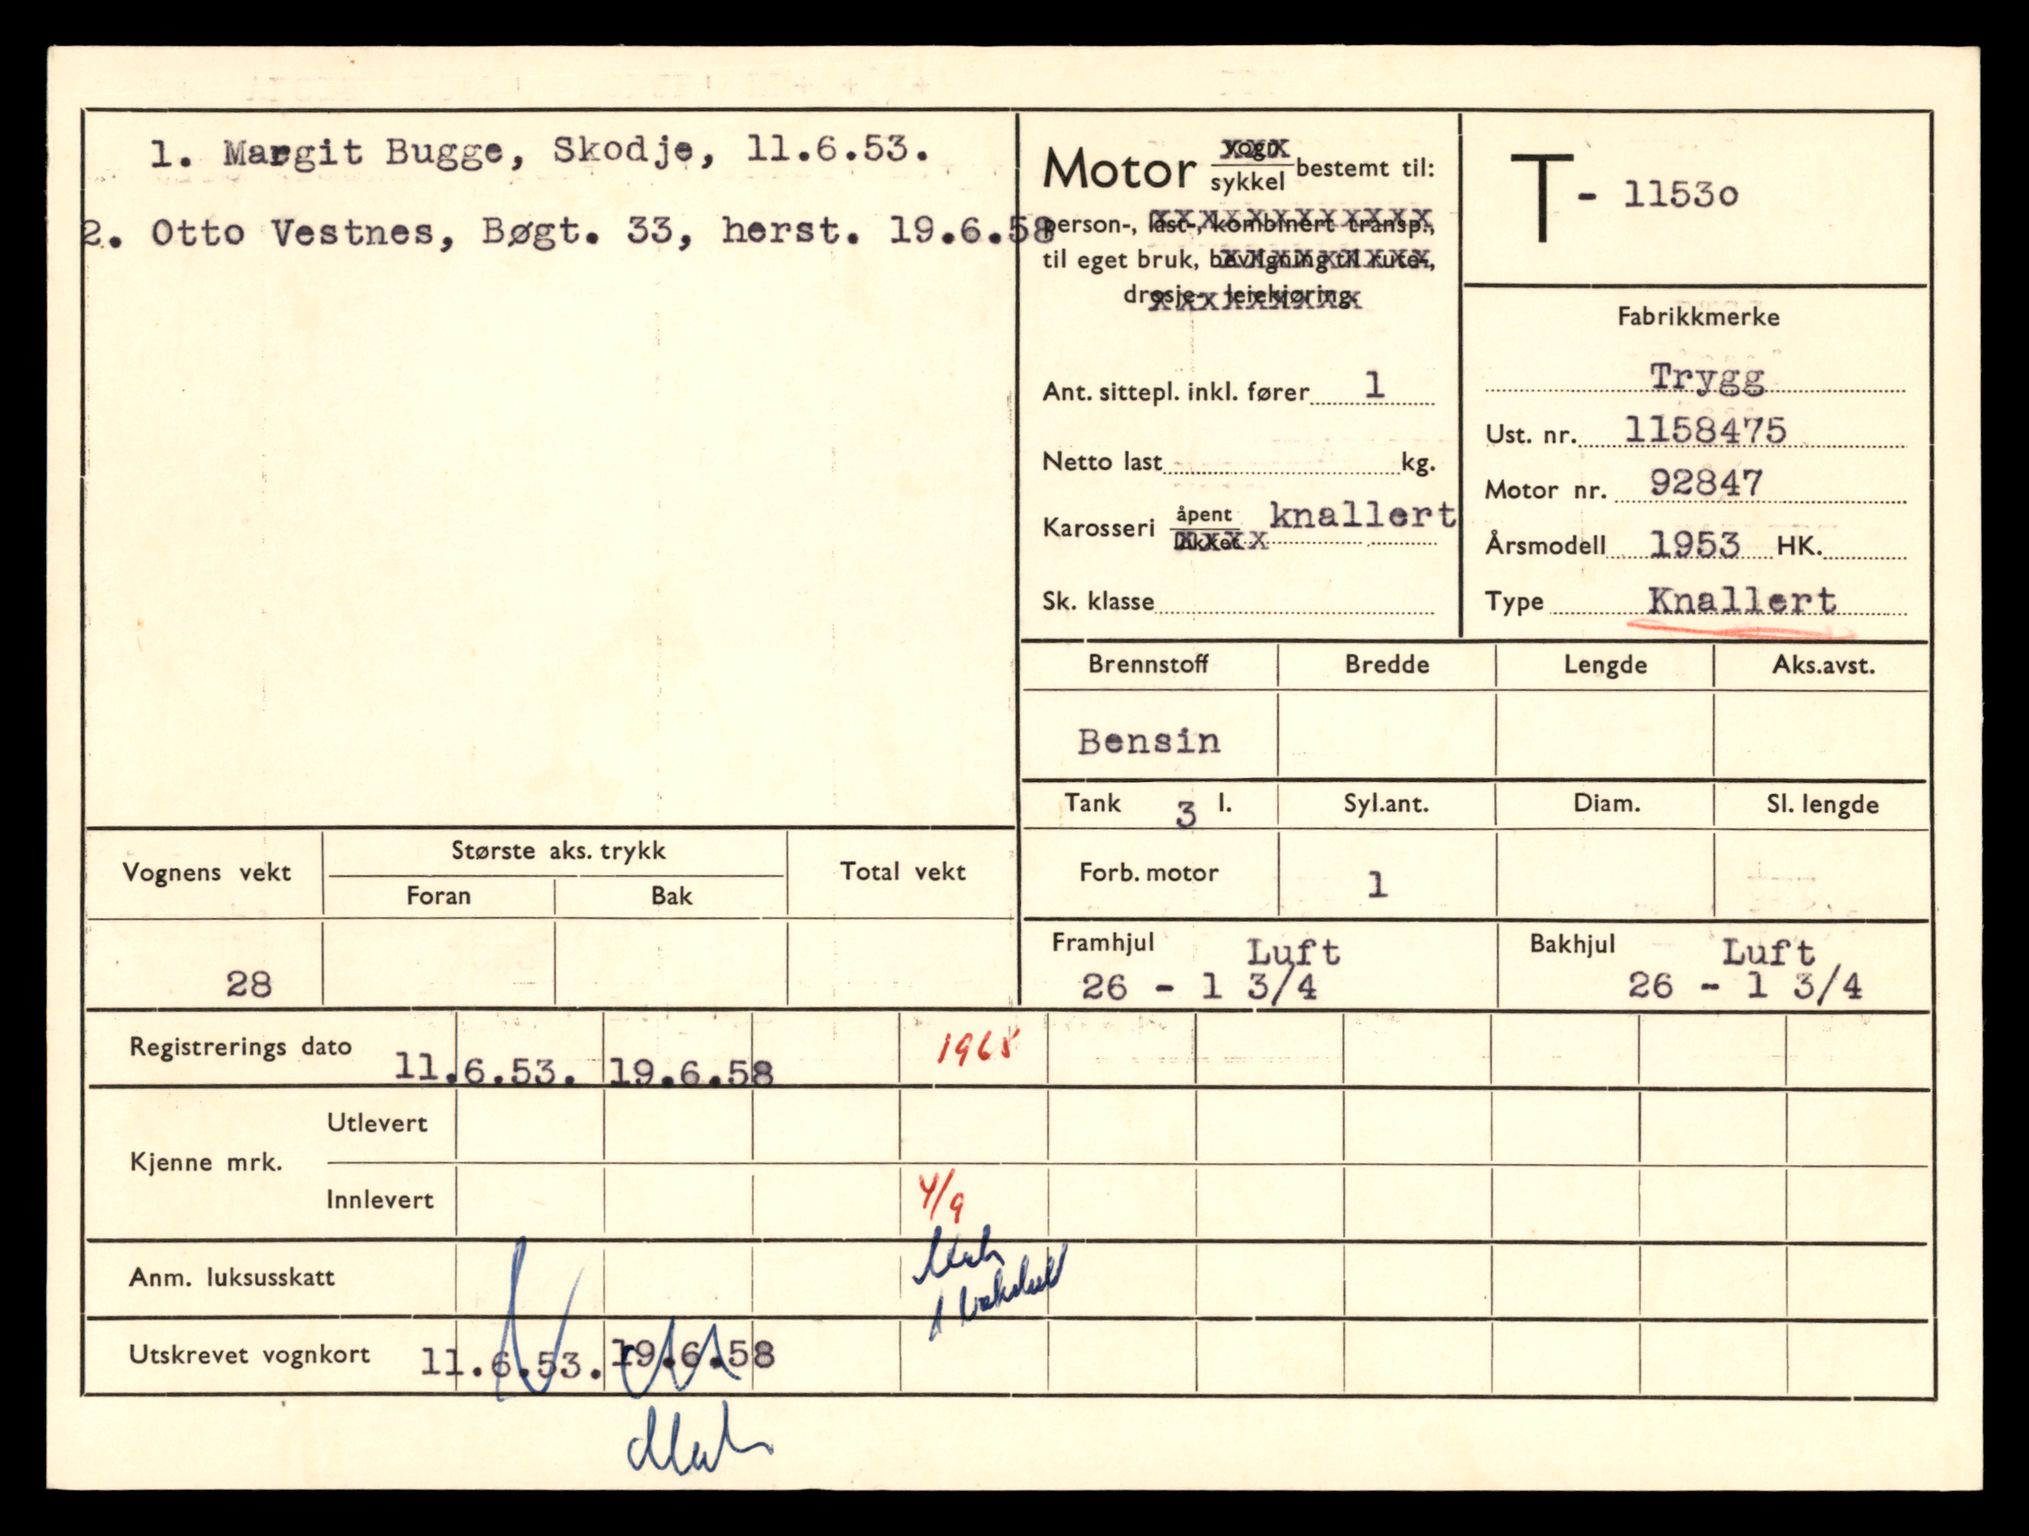 1. Margit Bugge, Skodje, 11.6.53.
2. Otto Vestnes, Bøgt. 33, herst. 19.6.58
Motor vogn sykkel bestemt til:
person-, last-, kombinert transp.,
til eget bruk, bevilgning til rute-,
drosje-, leiekjøring.
Ant. sittepl. inkl. fører 1
Netto last kg.
Karosseri åpent lukket knallert
Sk. klasse
T - 11530
Fabrikkmerke
Trygg
Ust. nr. 1158475
Motor nr. 92847
Årsmodell 1953 HK.
Type Knallert
Brennstoff Bredde Lengde Aks.avst.
Bensin
Tank 3 l. Syl.ant. Diam. Sl. lengde
Forb. motor 1
Framhjul Luft Bakhjul Luft
26 - 1 3/4 26 - 1 3/4
Vognens vekt Største aks. trykk Total vekt
Foran Bak
28
Registrerings dato 11.6.53. 19.6.58 1968
Kjenne mrk.
Utlevert
Innlevert 4/9
Anm. luksusskatt
Utskrevet vognkort 11.6.53. 19.6.58